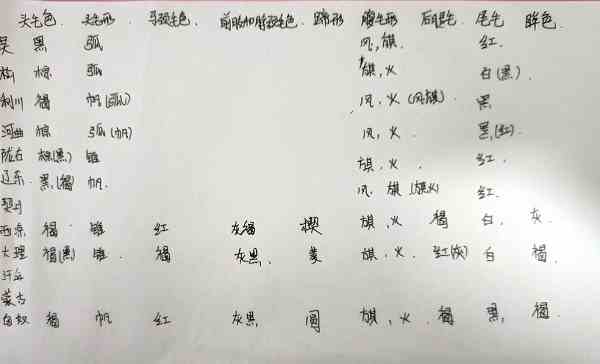 头毛色 头毛形 马颈毛色 前肢和肘颈毛色 蹄形 胸毛形 后腿毛 尾毛 眸色
吴 黑 弧 风,旗. 红.
棕 弧 旗,火 白(黑).
利川 褐 帆(弧) 风,火(风旗). 黑
河曲 棕 弧(帆) 风,火. 黑,(红).
陇右 棕(黑) 锥 旗,火. 红.
辽东. 黑,(褐) 帆. 风.旗(旗火) 红.
契丹
西凉 褐 锥 红 灰褐 楔 旗,火 褐 白, 灰.
大理 褐(黑) 锥. 褐 灰黑, 旗,火. 红(灰) 白 褐.
蒙古
匈奴 褐 帆 红 灰黑 圆 旗,火. 褐 黑, 褐.